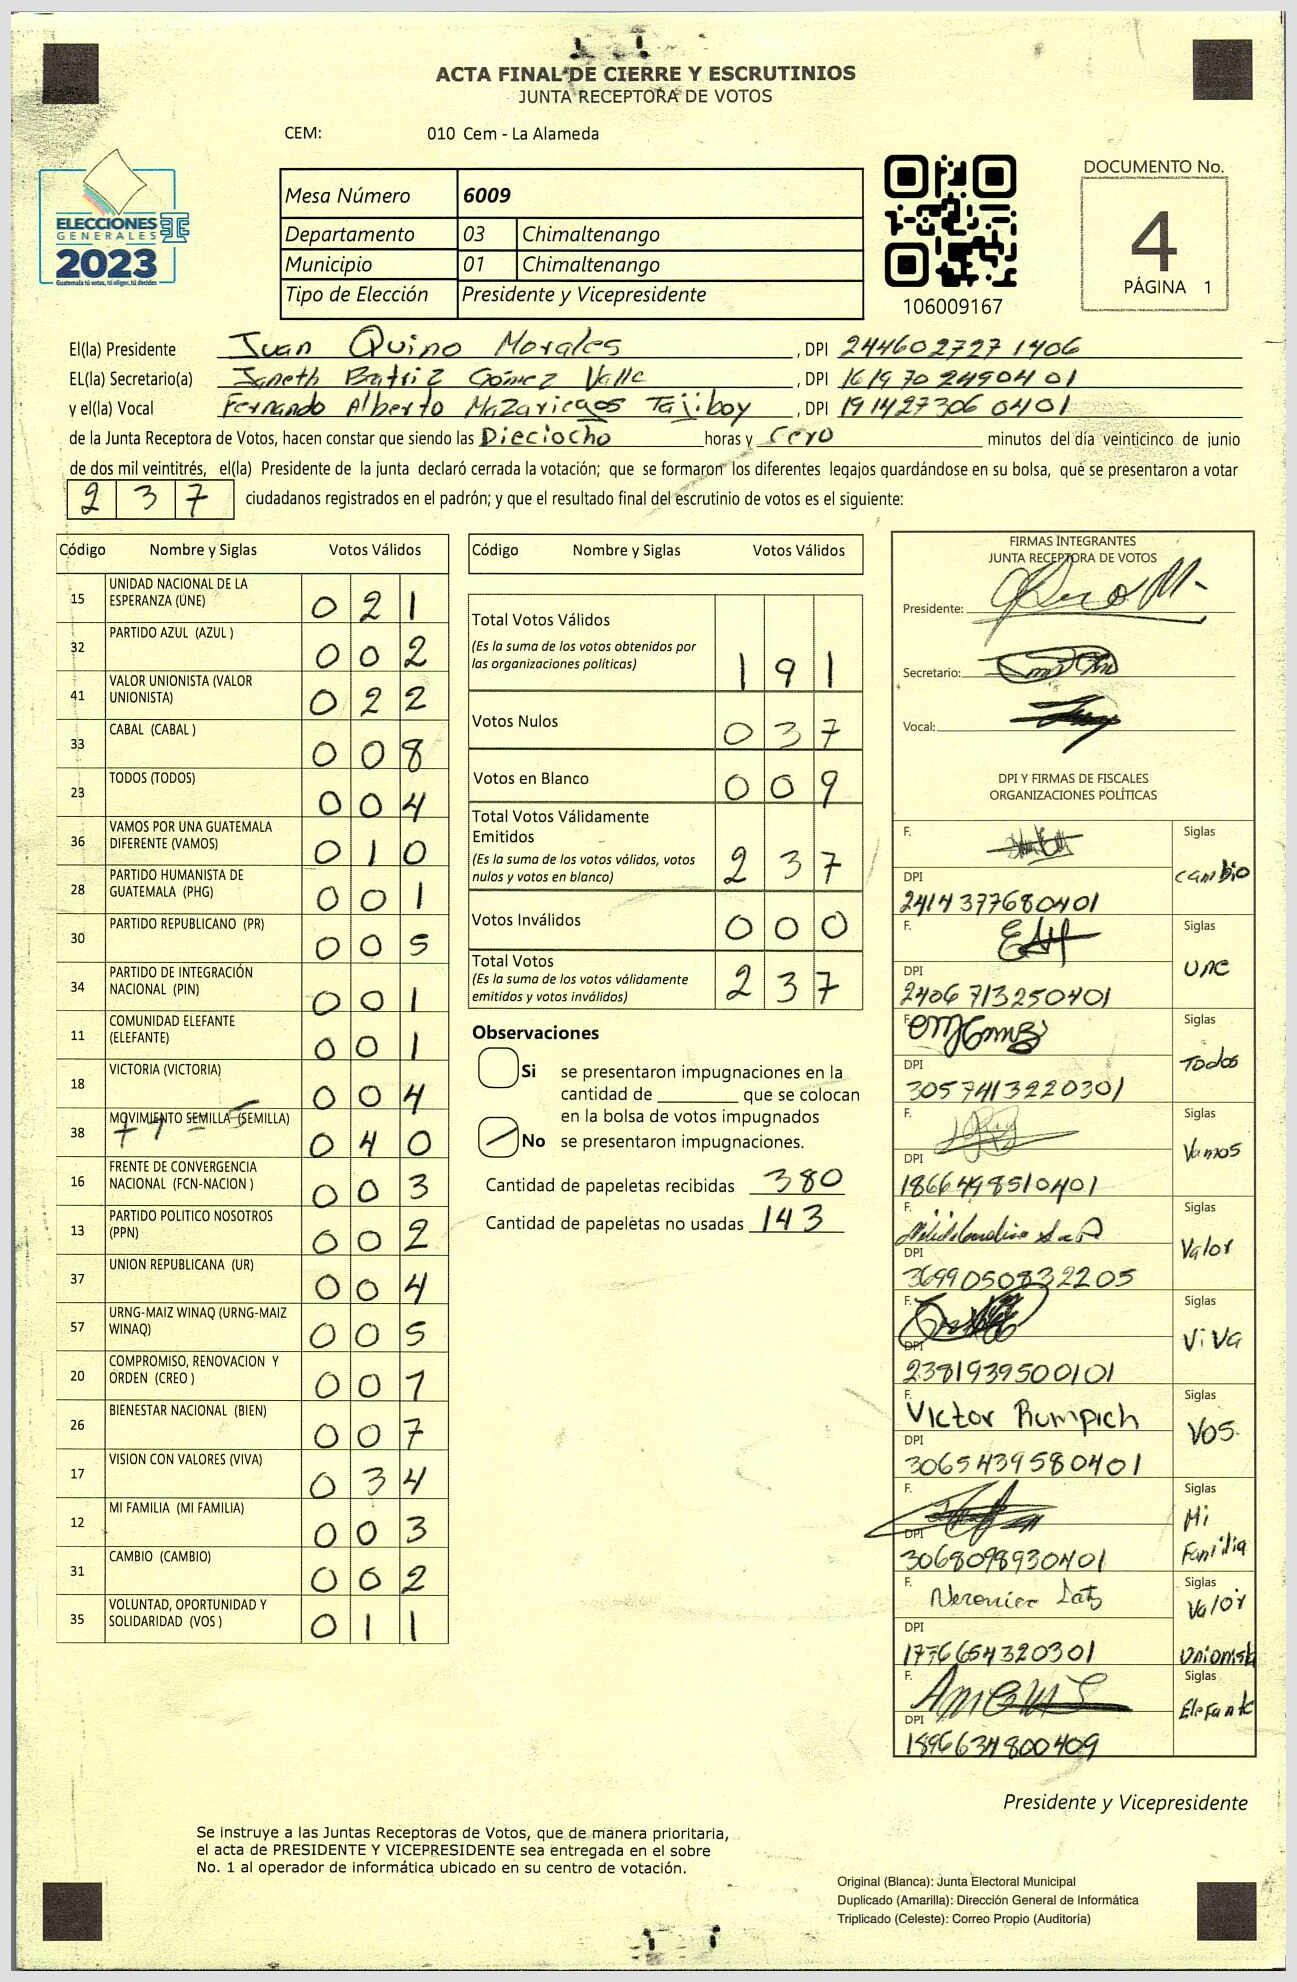 ACTA FINAL DE CIERRE Y ESCRUTINIOS
JUNTA RECEPTORA DE VOTOS
CEM: 010 Cem - La Alameda
ELECCIONES
GENERALES
2023
Guatemala tú votas, tú eliges, tú decides
Mesa Número 6009
Departamento 03 Chimaltenango
Municipio 01 Chimaltenango
Tipo de Elección Presidente y Vicepresidente
106009167
DOCUMENTO No.
4
PÁGINA 1
El(la) Presidente Juan Quino Morales, DPI 2446027271406
EL(la) Secretario(a) Janeth Batriz Gómez Valle, DPI 1619702490401
y el(la) Vocal Fernando Alberto Mazariegos Tajiboy, DPI 1914273060401
de la Junta Receptora de Votos, hacen constar que siendo las Dieciocho horas y Cero minutos del día veinticinco de junio
de dos mil veintitrés, el(la) Presidente de la junta declaró cerrada la votación; que se formaron los diferentes legajos guardándose en su bolsa, que se presentaron a votar
237 ciudadanos registrados en el padrón; y que el resultado final del escrutinio de votos es el siguiente:
Código Nombre y Siglas Votos Válidos
15 UNIDAD NACIONAL DE LA ESPERANZA (UNE) 021
32 PARTIDO AZUL (AZUL ) 002
41 VALOR UNIONISTA (VALOR UNIONISTA) 022
33 CABAL (CABAL ) 008
23 TODOS (TODOS) 004
36 VAMOS POR UNA GUATEMALA DIFERENTE (VAMOS) 010
28 PARTIDO HUMANISTA DE GUATEMALA (PHG) 001
30 PARTIDO REPUBLICANO (PR) 005
34 PARTIDO DE INTEGRACIÓN NACIONAL (PIN) 001
11 COMUNIDAD ELEFANTE (ELEFANTE) 001
18 VICTORIA (VICTORIA) 004
38 MOVIMIENTO SEMILLA (SEMILLA) 040
16 FRENTE DE CONVERGENCIA NACIONAL (FCN-NACION ) 003
13 PARTIDO POLITICO NOSOTROS (PPN) 002
37 UNION REPUBLICANA (UR) 004
57 URNG-MAIZ WINAQ (URNG-MAIZ WINAQ) 005
20 COMPROMISO, RENOVACION Y ORDEN (CREO ) 001
26 BIENESTAR NACIONAL (BIEN) 007
17 VISION CON VALORES (VIVA) 034
12 MI FAMILIA (MI FAMILIA) 003
31 CAMBIO (CAMBIO) 002
35 VOLUNTAD, OPORTUNIDAD Y SOLIDARIDAD (VOS ) 011
Código Nombre y Siglas Votos Válidos
Total Votos Válidos
(Es la suma de los votos obtenidos por
las organizaciones políticas) 191
Votos Nulos 037
Votos en Blanco 009
Total Votos Válidamente
Emitidos
(Es la suma de los votos válidos, votos
nulos y votos en blanco) 237
Votos Inválidos 000
Total Votos
(Es la suma de los votos válidamente
emitidos y votos inválidos) 237
Observaciones
Si se presentaron impugnaciones en la
cantidad de ________ que se colocan
en la bolsa de votos impugnados
No se presentaron impugnaciones.
Cantidad de papeletas recibidas 380
Cantidad de papeletas no usadas 143
FIRMAS INTEGRANTES
JUNTA RECEPTORA DE VOTOS
Presidente:
Secretario:
Vocal:
DPI Y FIRMAS DE FISCALES
ORGANIZACIONES POLÍTICAS
F. Siglas
cambio
DPI
2414377680401
F. Siglas
UNE
DPI
2406713250401
F. Siglas
Todos
DPI
3057413220301
F. Siglas
Vamos
DPI
1866498510401
F. Siglas
Valor
DPI
3699050832205
F. Siglas
ViVA
DPI
2381939500101
F. Victor Rumpich Siglas
VOS
DPI
3065439580401
F. Siglas
Mi
Familia
DPI
3068098930401
F. Siglas
Valor
Unionista
DPI
1776654320301
F. Siglas
Elefante
DPI
1896634800409
Presidente y Vicepresidente
Se instruye a las Juntas Receptoras de Votos, que de manera prioritaria,
el acta de PRESIDENTE Y VICEPRESIDENTE sea entregada en el sobre
No. 1 al operador de informática ubicado en su centro de votación.
Original (Blanca): Junta Electoral Municipal
Duplicado (Amarilla): Dirección General de Informática
Triplicado (Celeste): Correo Propio (Auditoría)